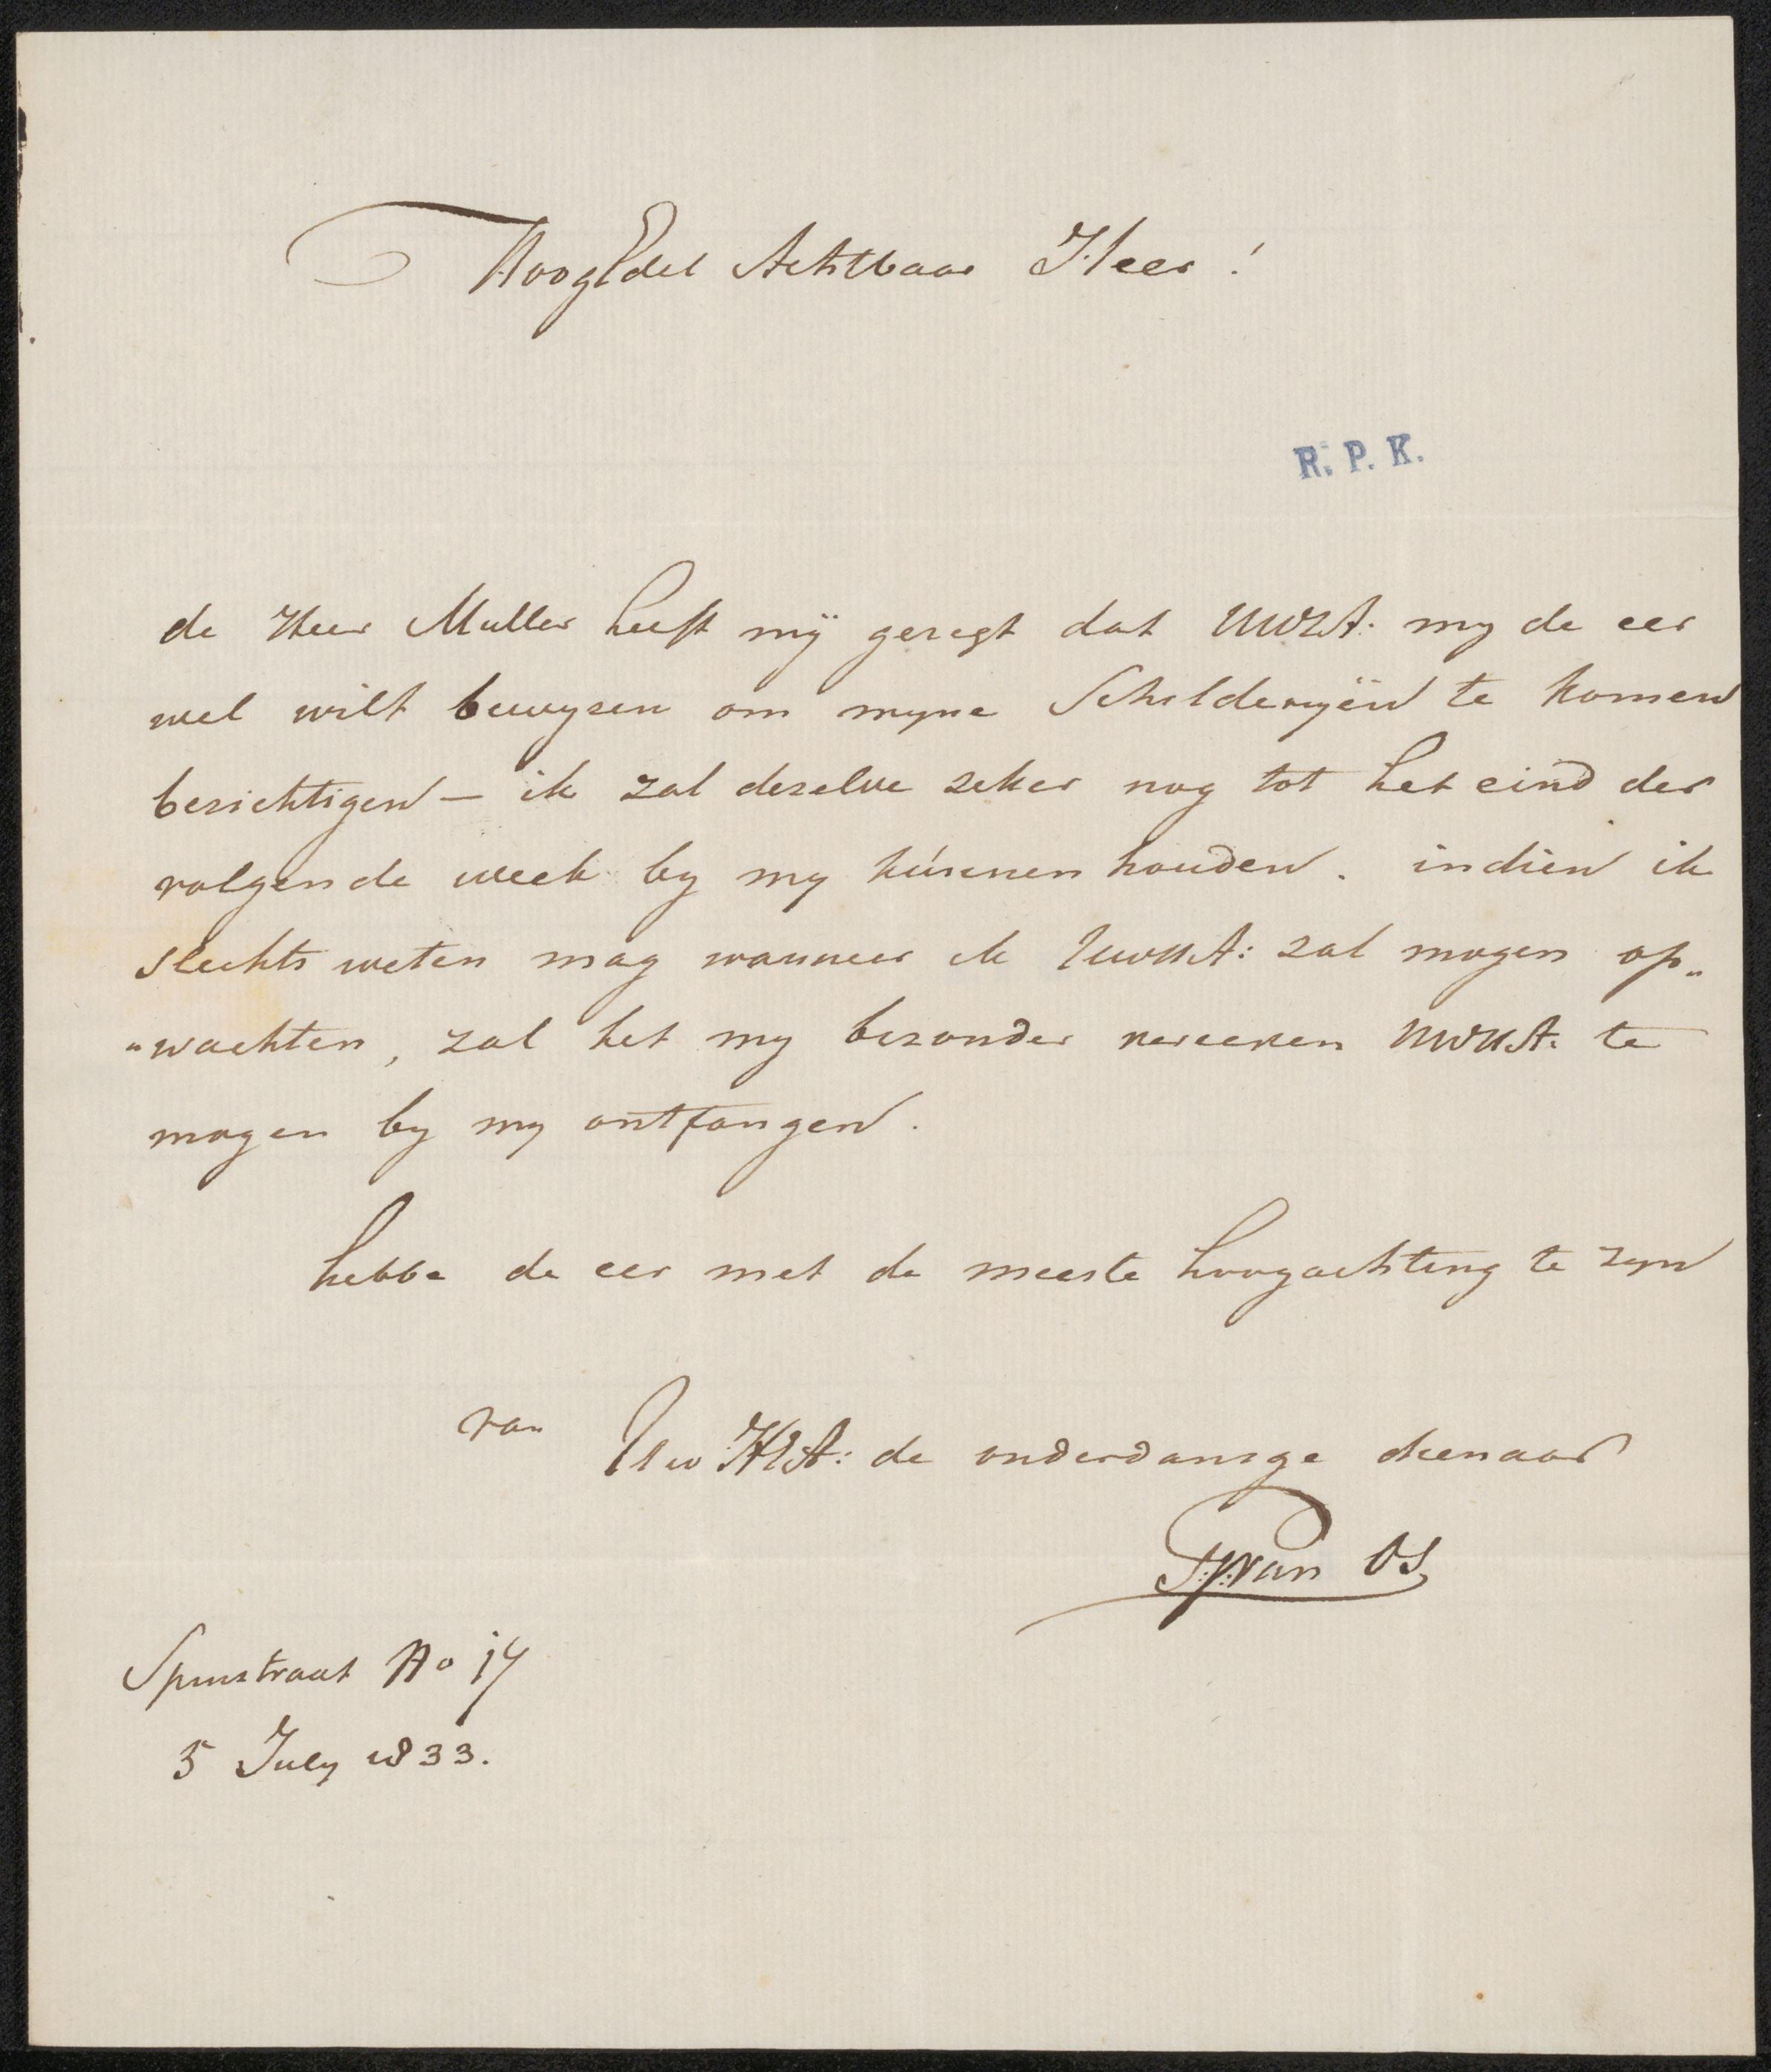 HoogEdel Achtbaar Heer!
R. P. K.
de Heer Muller heeft mÿ gezegt dat UWEA: my de eer
wel wilt bewyzen om myne Schilderyën te komen
bezichtigen — ik zal dezelve zeker nog tot het eind der
volgende week by my kúnnen houden. indien ik
slechts weten mag wanneer ik UwEA: zal mogen op„
„wachten, zal het my bezonder vereeren UWEA: te
mogen by my ontfangen.
hebbe de eer met de meeste hoogachting te zyn
van
Uw HEA: de onderdanige dienaar
van Os
Spuistraat No 17
5 July 1833.